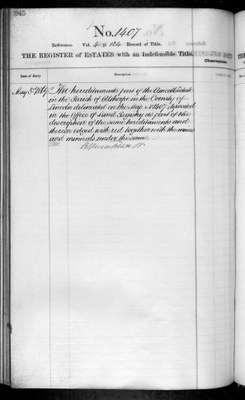 No. 1407
Reference: Vol. Record of Title.
THE REGISTER of ESTATES with an Indefeasible Title.
Date of Entry
Description
May 5th 1869 The hereditaments part of the Estate
in the Parish of Althorpe in the County of
Lincoln delineated on the Map No 1407 deposited
in the Office of Land Registry as part of the
description of the same hereditaments and
thereon edged with red together with the mines
and minerals under the same